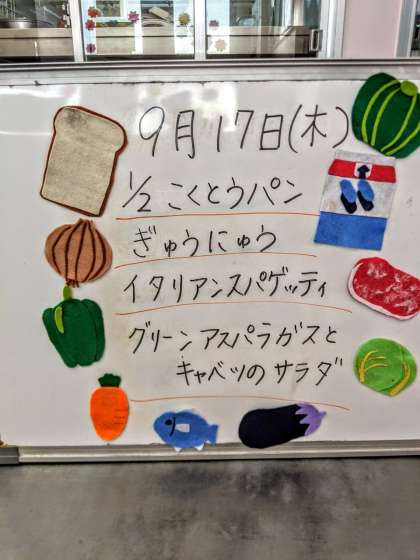 9月17日(木)
1/2 こくとうパン
ぎゅうにゅう
イタリアンスパゲッティ
グリーンアスパラガスと
キャベツのサラダ